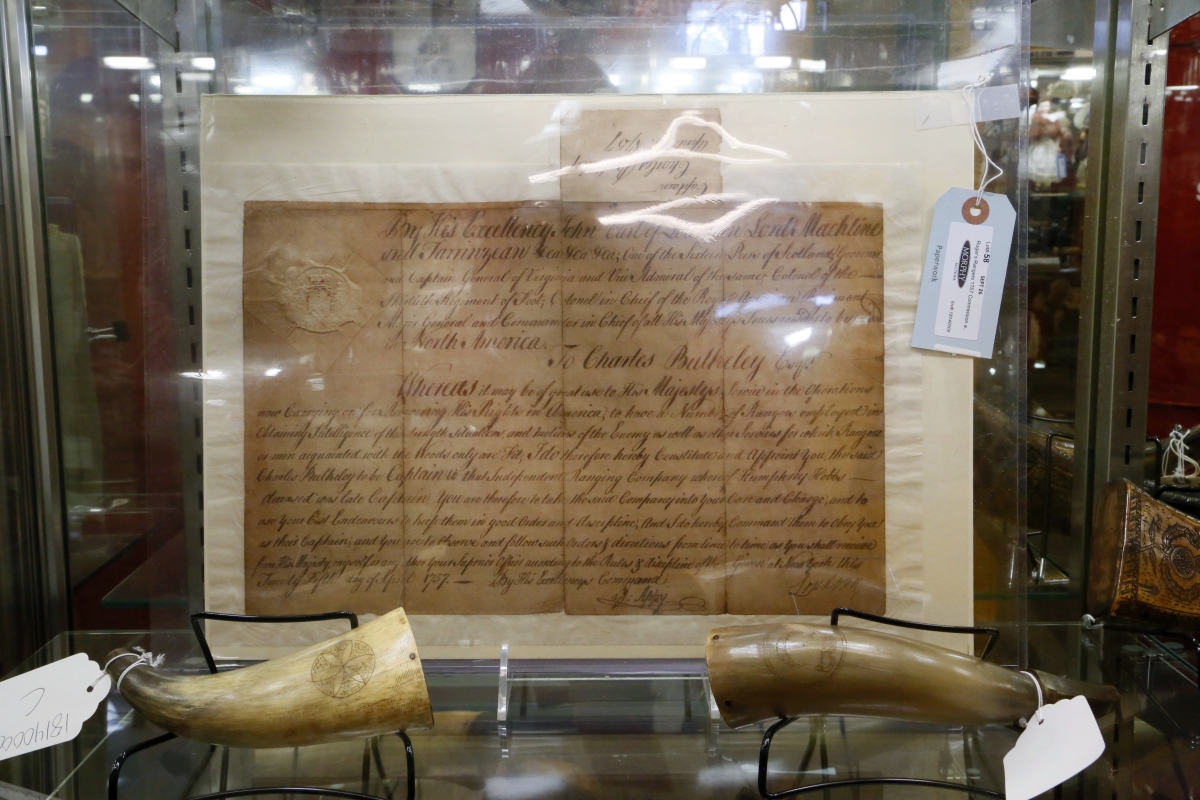 Captain
Charles
April 1757
By His Excellency John Earl of Loudoun Lord Machline
and Tarrinzean &ca &ca &ca, One of the Sixteen Peers of Scotland, Governor
Captain General of Virginia and Vice Admiral of the same Colonel of the
Regiment of Foot, Colonel in Chief of the Royal American Regiment
Major General and Commander in Chief of all His Majestys Forces
in North America.
To Charles Bulkeley Esqr.
Whereas it may be of great use to His Majestys Service in the Operations
now Carrying on for Recovering His Rights in America, to have a Number of Rangers employed in
Obtaining Intelligence of the Strength Situation, and motions of the Enemy as well as other Services for which Rangers
or men acquainted with the Woods only are Fit, I do therefore hereby Constitute and Appoint You the said
Charles Bulkeley to be Captain to that Independent Ranging Company whereof Humphrey Hobbs
deceased was late Captain You are therefore to take the said Company into Your Care and Charge, and to
use Your best Endeavours to keep them in good Order and Discipline, And I do hereby Command them to Obey You
as their Captain, and You are to observe and follow such Orders & directions from time to time as You shall receive
from His Majesty, myself or any other Your Superior Officer according to the Rules & discipline of War Given at New York this
Twenty Fifth day of April 1757. By His Excellencys Command
Loudoun
J: Appy
Lot: 58 SEPT 26
Roger's Rangers 1757 Commission
MORPHY
Paperwork
C